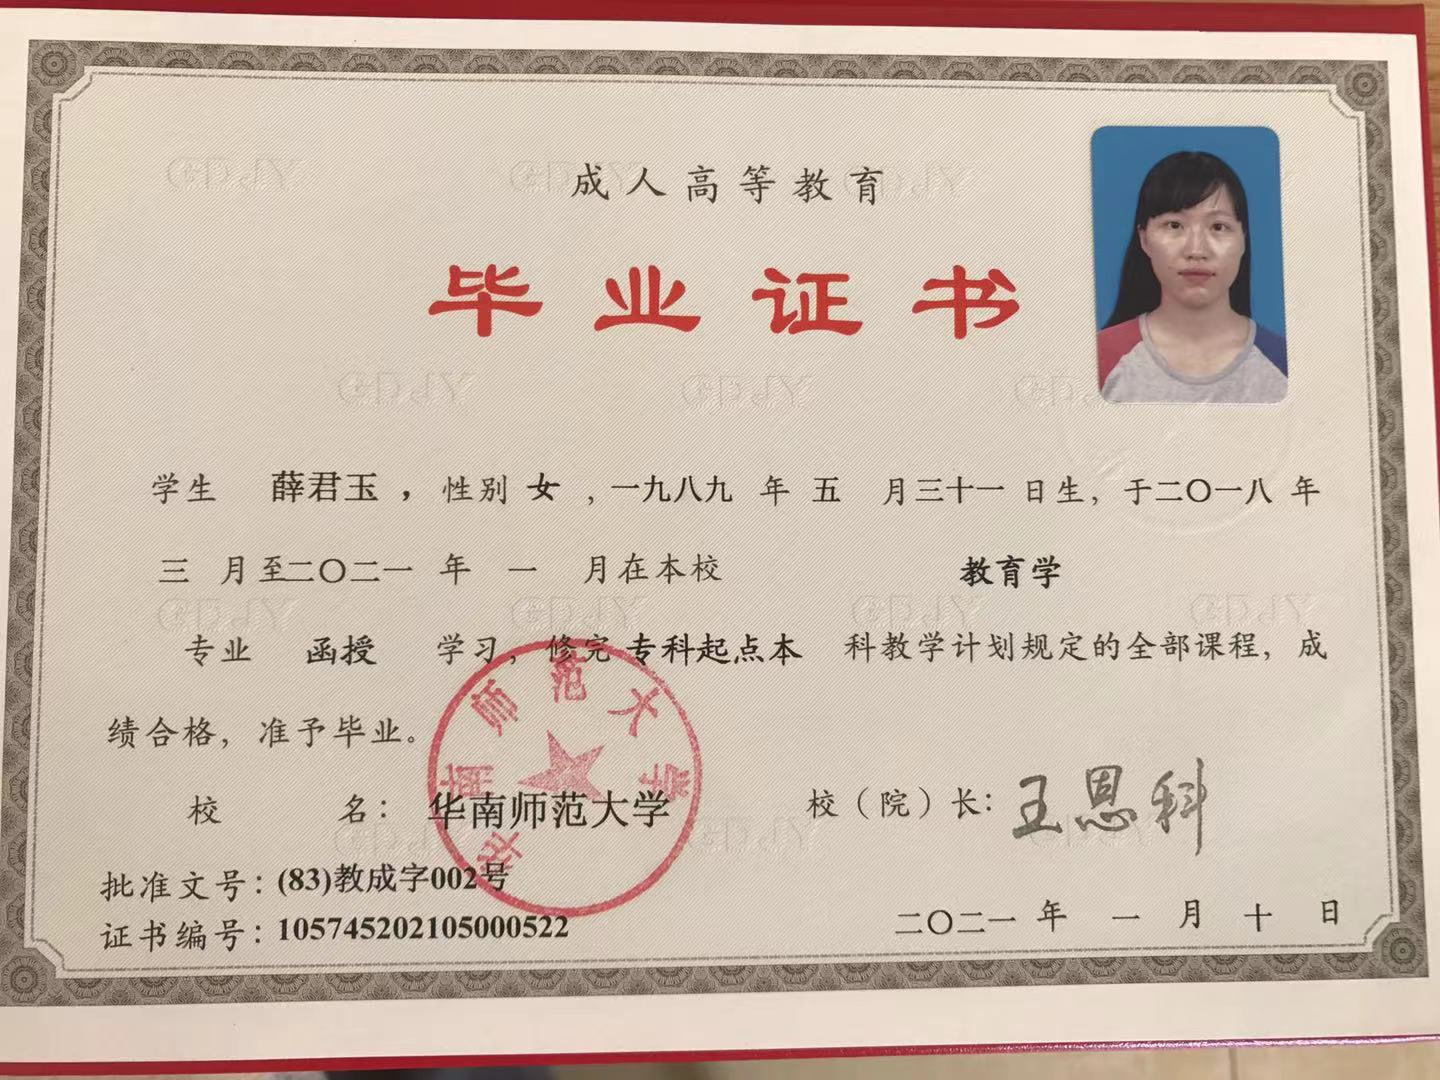 成人高等教育
毕业证书
学生 薛君玉 ，性别 女 ,一九八九 年 五 月三十一 日生，于二〇一八 年
三 月至二〇二一 年 一 月在本校 教育学
专业 函授 学习，修完 专科起点本 科教学计划规定的全部课程，成
绩合格，准予毕业。
校 名： 华南师范大学
校（院）长：王恩科
批准文号：(83)教成字002号
证书编号：105745202105000522
二〇二一 年 一 月 十 日
华南师范大学